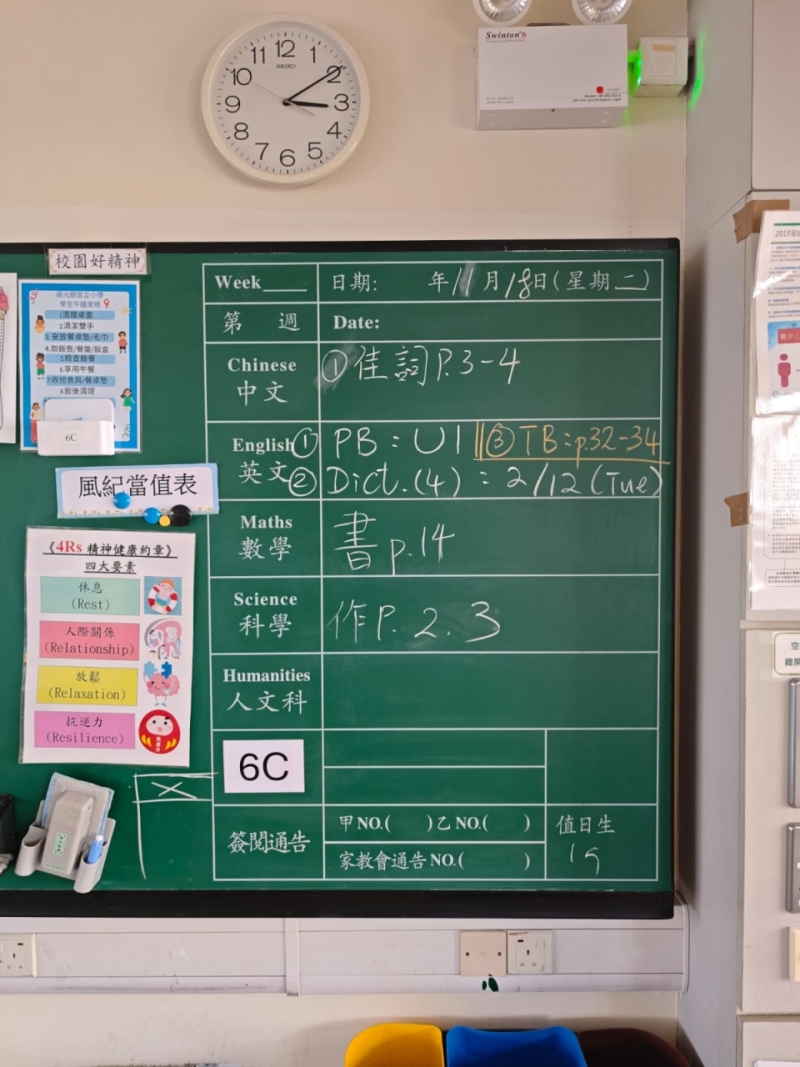 12 1 2 3 4 5 6 7 8 9 10 11
SEIKO
Swinton's
校園好精神
學生午膳常規
1.清理桌面
2.清潔雙手
3.安放餐桌墊/毛巾
4.取飯壺/餐盤/飯盒
5.檢查飯餐
6.享用午餐
7.收拾食具/餐桌墊
8.飯後清理
6C
風紀當值表
《4Rs 精神健康約章》
四大要素
休息
(Rest)
人際關係
(Relationship)
放鬆
(Relaxation)
抗逆力
(Resilience)
Week 日期: 年11月18日(星期二)
第 週 Date:
Chinese
中文
①佳詞P.3-4
English
英文
① PB : U1 ③TB:p.32-34
② Dict.(4) : 2/12 (Tue)
Maths
數學
書 p.14
Science
科學
作P. 2.3
Humanities
人文科
6C
簽閱通告
甲NO.( )乙NO.( )
家教會通告NO.( )
值日生
15